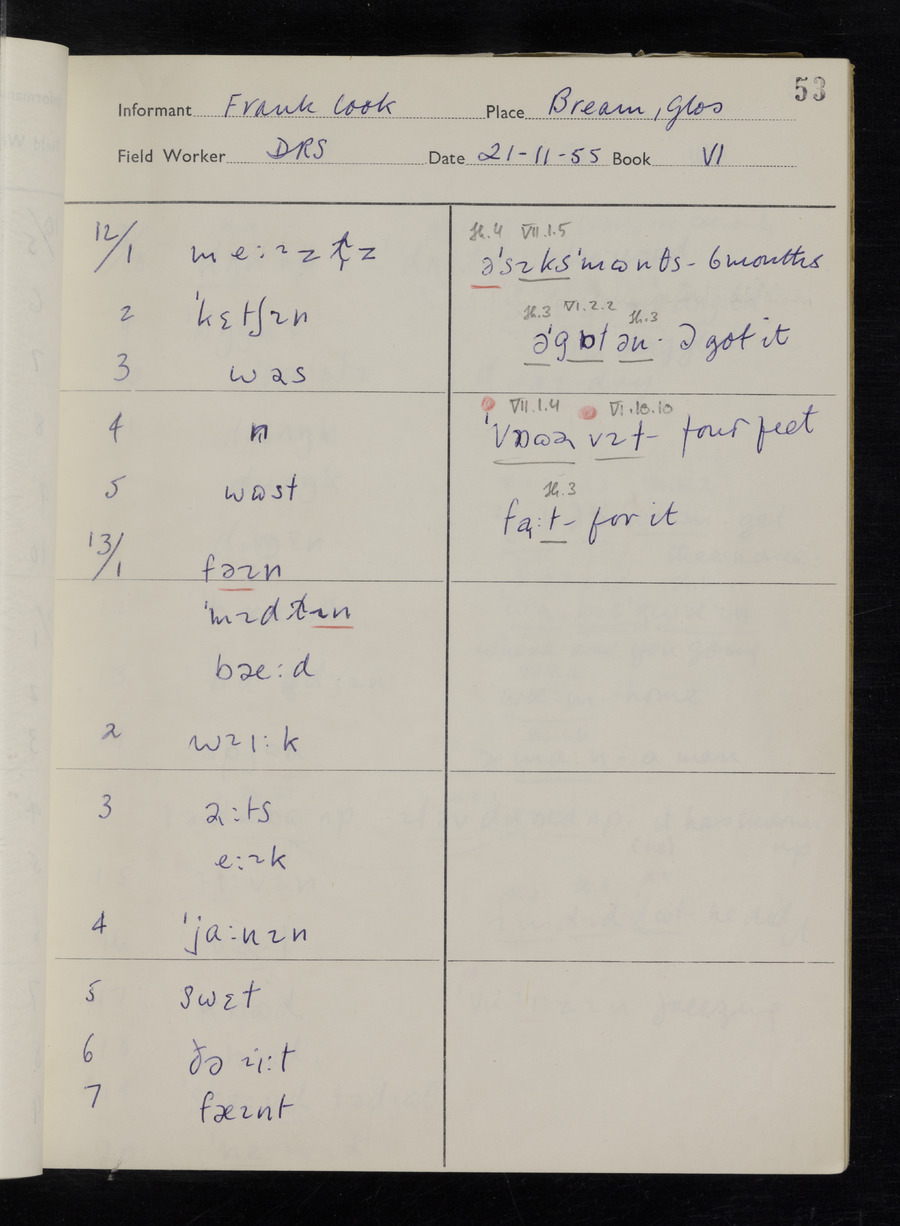 53
Informant Frank Cook Place Bream, Glos
Field Worker DRS Date 21-11-55 Book VI
12/1
2 ˈkɛtʃɪn
3 wəs
4 n
5 wɷst
13/1 fəɪn
ˈmɪd
bæ:d
2 wɪɪ:k
3 ə:ts
e:ɪk
4 ˈja:nɪn
5 swɛt
6 ðə ɹi:t
7 fæɪnt
H.4 VII.1.5
əˈsɪksˈmɷnθs - 6 months
H.3 VI.2.2 H.3
əˈgɒt ən - ə got it
VII.1.4 VI.10.10
vɪt - four feet
H.3
fɑ:t - for it